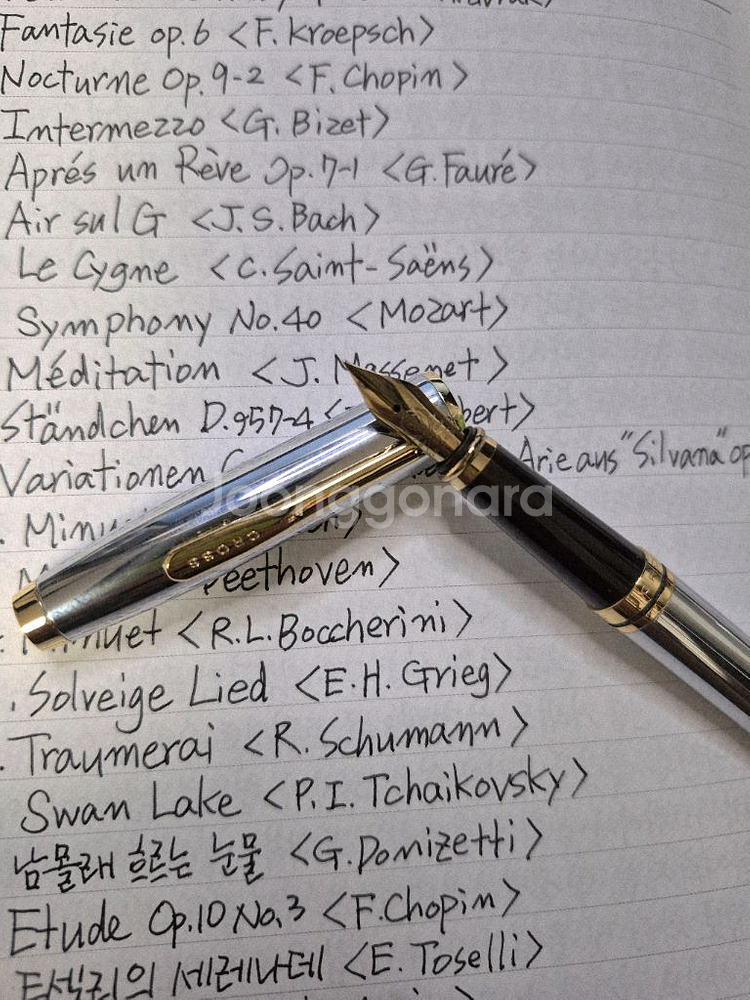 Fantasie op.6 <F. Kroepsch>
Nocturne Op.9-2 <F. Chopin>
Intermezzo <G. Bizet>
Aprés un Rève Op.7-1 <G. Fauré>
Air sul G <J.S. Bach>
Le Cygne <C. Saint-Saëns>
Symphony No.40 <Mozart>
Méditation <J. Massenet>
Ständchen D.957-4 < bert>
Variationen Arie aus "Silvana" op
Joonggonara
CROSS
Beethoven>
Minuet <R.L. Boccherini>
Solveige Lied <E.H. Grieg>
Traumerai <R. Schumann>
Swan Lake <P.I. Tchaikovsky>
남몰래 흐르는 눈물 <G. Donizetti>
Etude Op.10 No.3 <F. Chopin>
토셀리의 세레나데 <E. Toselli>